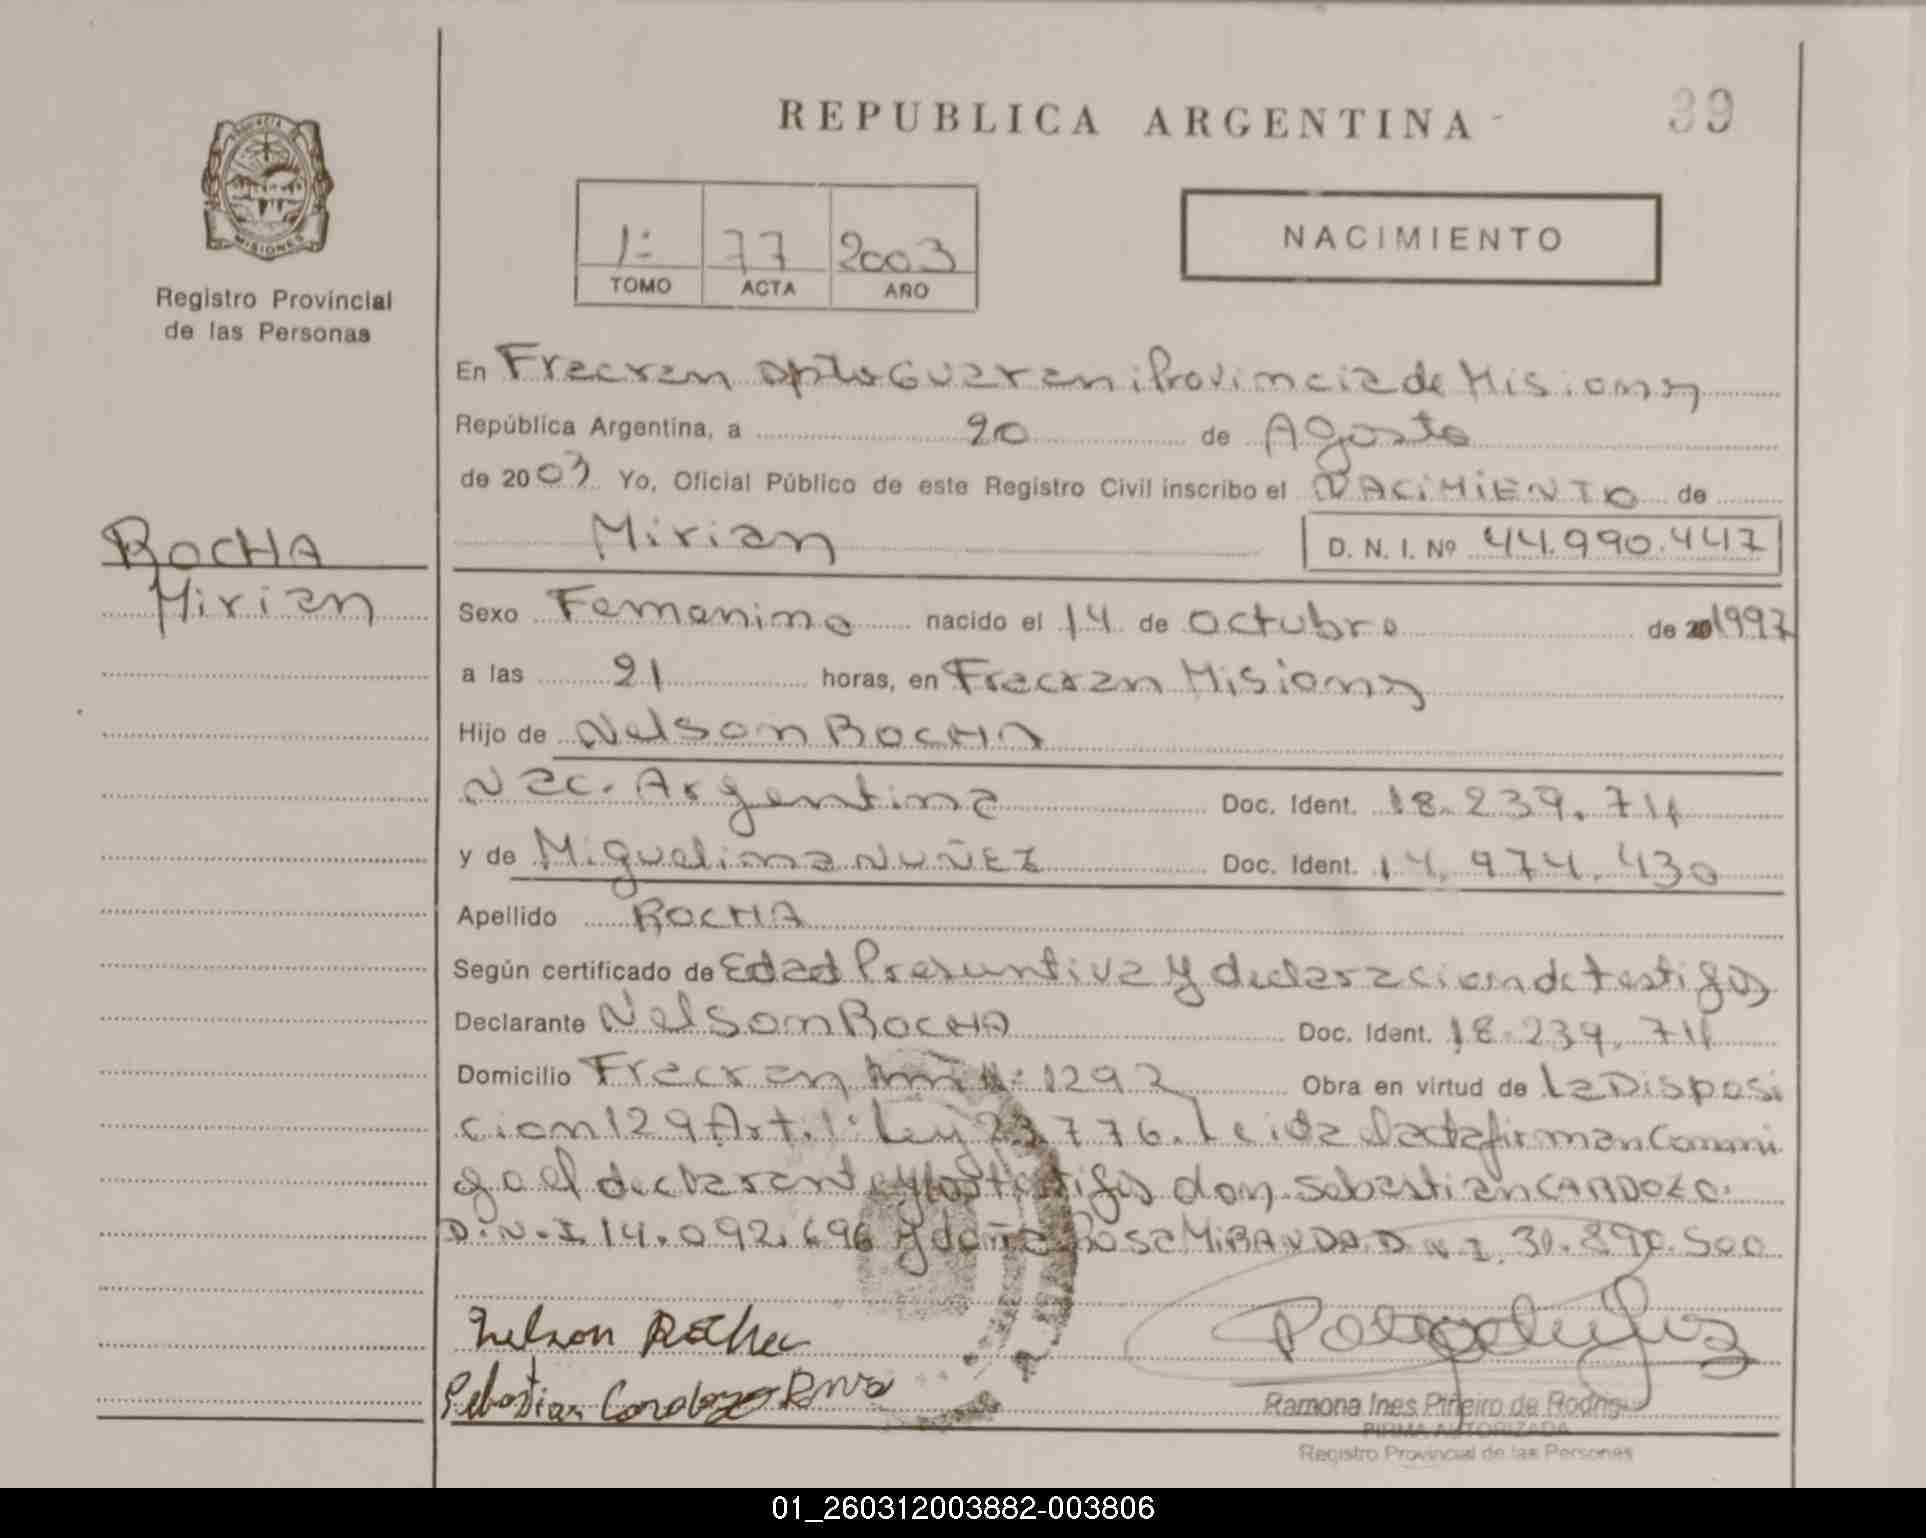 REPUBLICA ARGENTINA
39
PROVINCIA
MISIONES
Registro Provincial
de las Personas
1º 77 2003
TOMO ACTA AÑO
NACIMIENTO
En Fracran Dpto Guarani Provincia de Misiones
República Argentina, a 20 de Agosto
de 2003 Yo, Oficial Público de este Registro Civil inscribo el NACIMIENTO de
Mirian D. N. I. Nº 44.990.447
ROCHA
Mirian
Sexo Femenino nacido el 14 de octubre de 20 1997
a las 21 horas, en Fracran Misiones
Hijo de Nelson ROCHA
Nac. Argentina Doc. Ident. 18.239.711
y de Miguelina NUÑEZ Doc. Ident. 14.974.430
Apellido ROCHA
Según certificado de Edad Presuntiva y declaracion de testigos
Declarante Nelson ROCHA Doc. Ident. 18.239.711
Domicilio Fracran Nº 1292 Obra en virtud de La Disposi
cion 129 Art. 1º Ley 23.776. Leida el acta firman Conmi
go el declarante y los testigos don Sebastian CARDOZO
D.N.I. 14.092.696 y doña Rosa MIRANDA D N I. 30.890.500
Nelson Rocha
Sebastian Cardozo
Ramona Ines Piñeiro de Rodrigu
FIRMA AUTORIZADA
Registro Provincial de las Personas
01_260312003882-003806